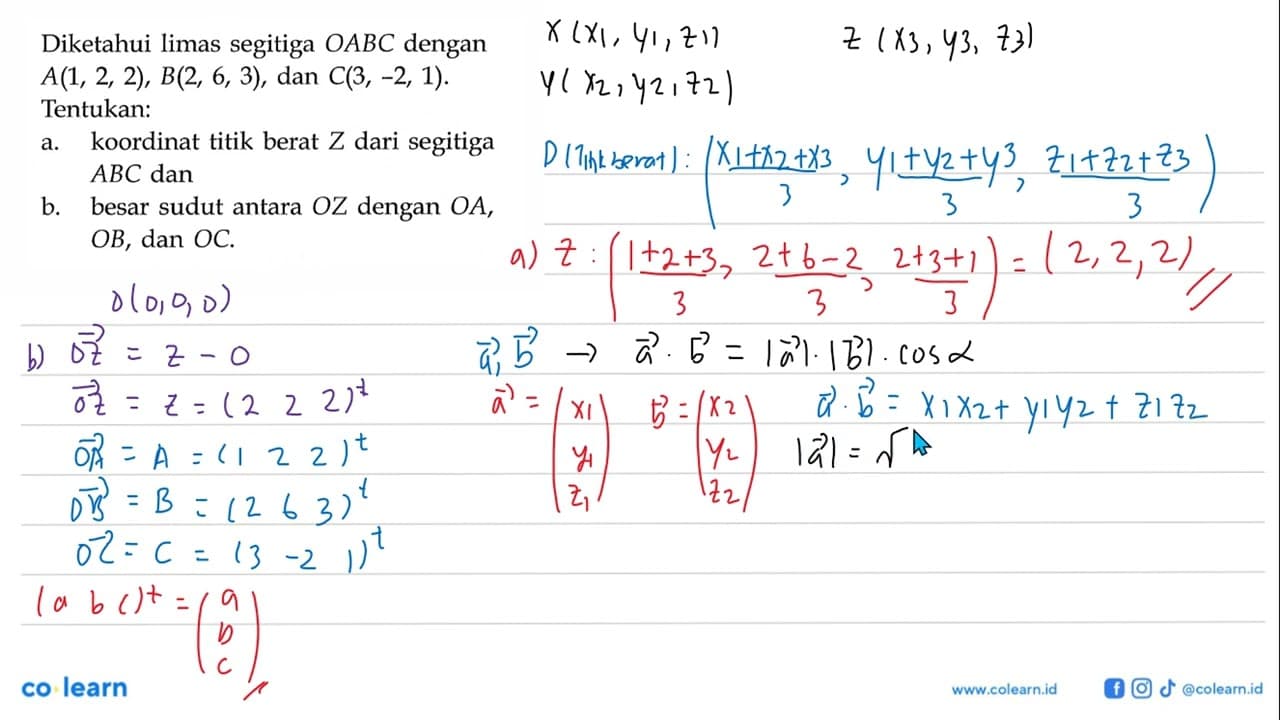 Diketahui limas segitiga OABC dengan
A(1, 2, 2), B(2, 6, 3), dan C(3, –2, 1).
Tentukan:
a. koordinat titik berat Z dari segitiga
ABC dan
b. besar sudut antara OZ dengan OA,
OB, dan OC.
X (x1, y1, z1)
Z (x3, y3, z3)
Y (x2, y2, z2)
D (Titik berat) : ((x1+x2+x3)/3, (y1+y2+y3)/3, (z1+z2+z3)/3)
a) Z : ((1+2+3)/3, (2+6-2)/3, (2+3+1)/3) = (2, 2, 2)
O(0, 0, 0)
b) OZ⃗ = Z - O
OZ⃗ = Z = (2 2 2)^t
OA⃗ = A = (1 2 2)^t
OB⃗ = B = (2 6 3)^t
OC⃗ = C = (3 -2 1)^t
(a b c)^t = (a
b
c)
a⃗, b⃗ → a⃗ . b⃗ = |a⃗| . |b⃗| . cos α
a⃗ = (x1 y1 z1) b⃗ = (x2 y2 z2) a⃗ . b⃗ = x1x2 + y1y2 + z1z2
|a⃗| = √
co learn
www.colearn.id
@colearn.id